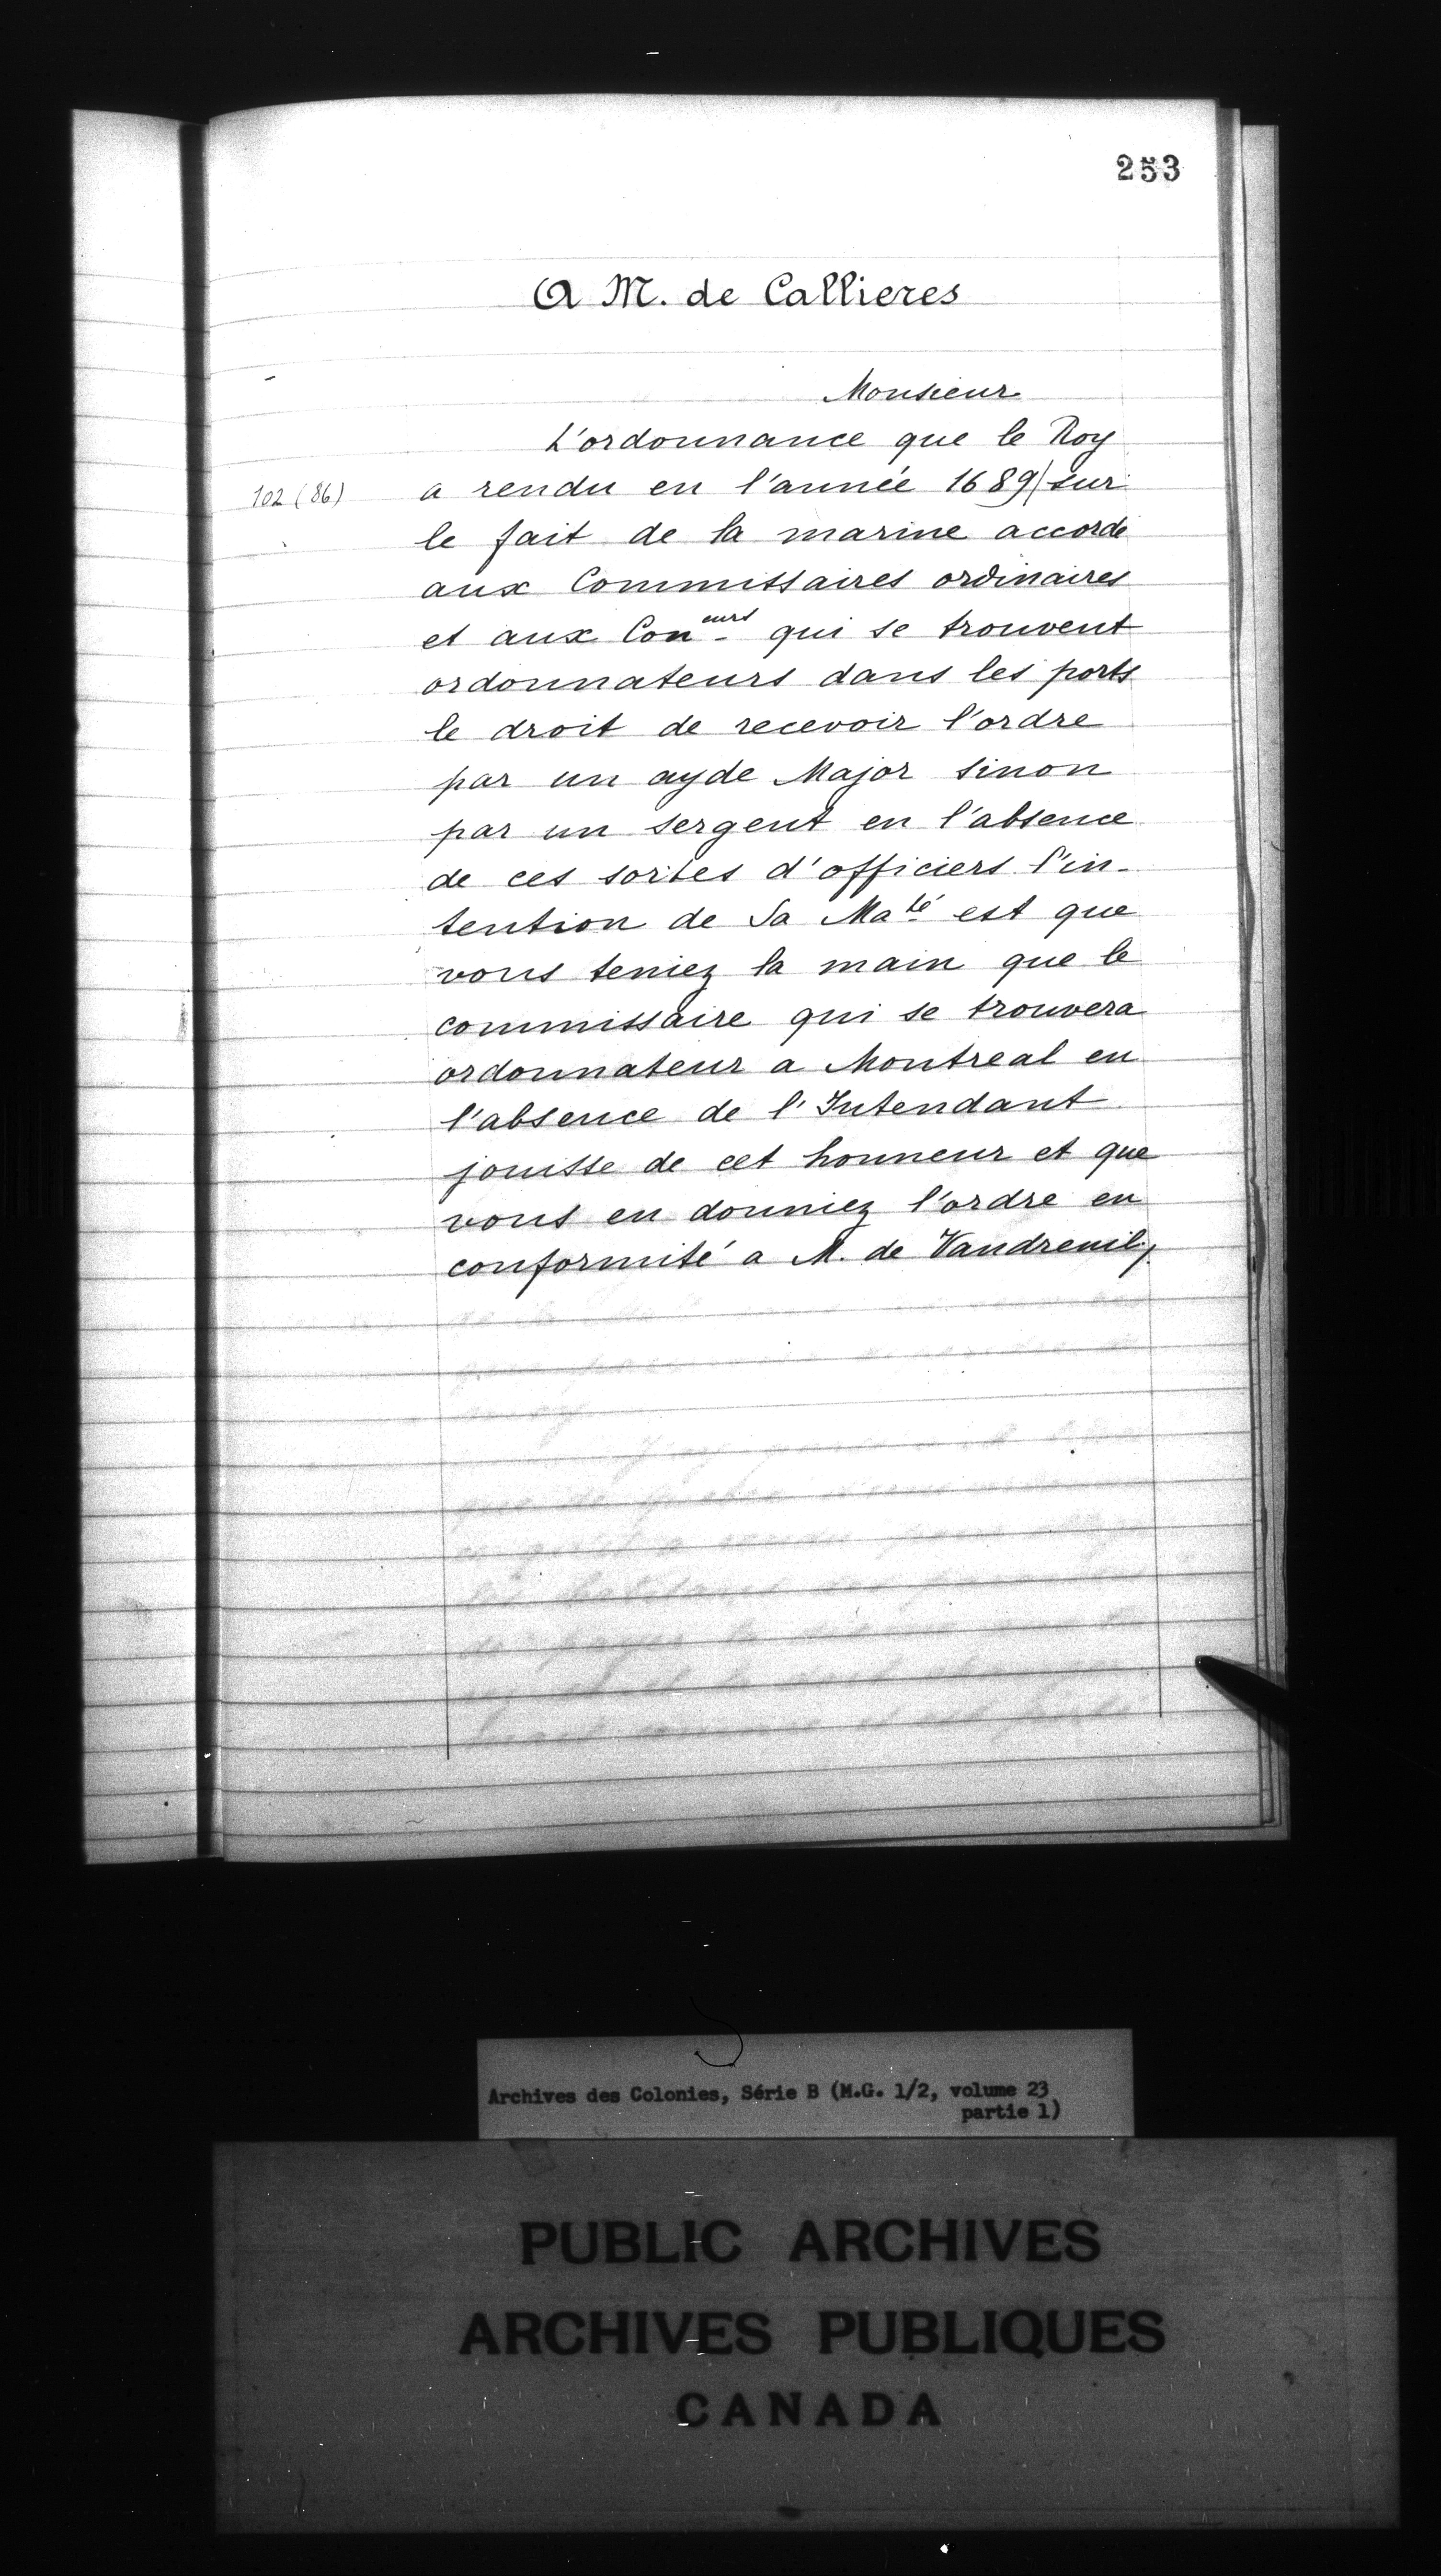 253
A M. de Callieres
Monsieur
L'ordonnance que le Roy
102 (86) a rendu en l'année 1689/sur
le fait de la marine accorde
aux Commissaires ordinaires
et aux Con^eurs qui se trouvent
ordonnateurs dans les ports
le droit de recevoir l'ordre
par un ayde Major sinon
par un sergent en l'absence
de ces sortes d'officiers l'in-
tention de Sa Ma^té est que
vous teniez la main que le
commissaire qui se trouvera
ordonnateur a Montreal en
l'absence de l'Intendant
jouisse de cet honneur et que
vous en donniez l'ordre en
conformité a M. de Vaudreuil,.
Archives des Colonies, Série B (M.G. 1/2, volume 23
partie 1)
PUBLIC ARCHIVES
ARCHIVES PUBLIQUES
CANADA